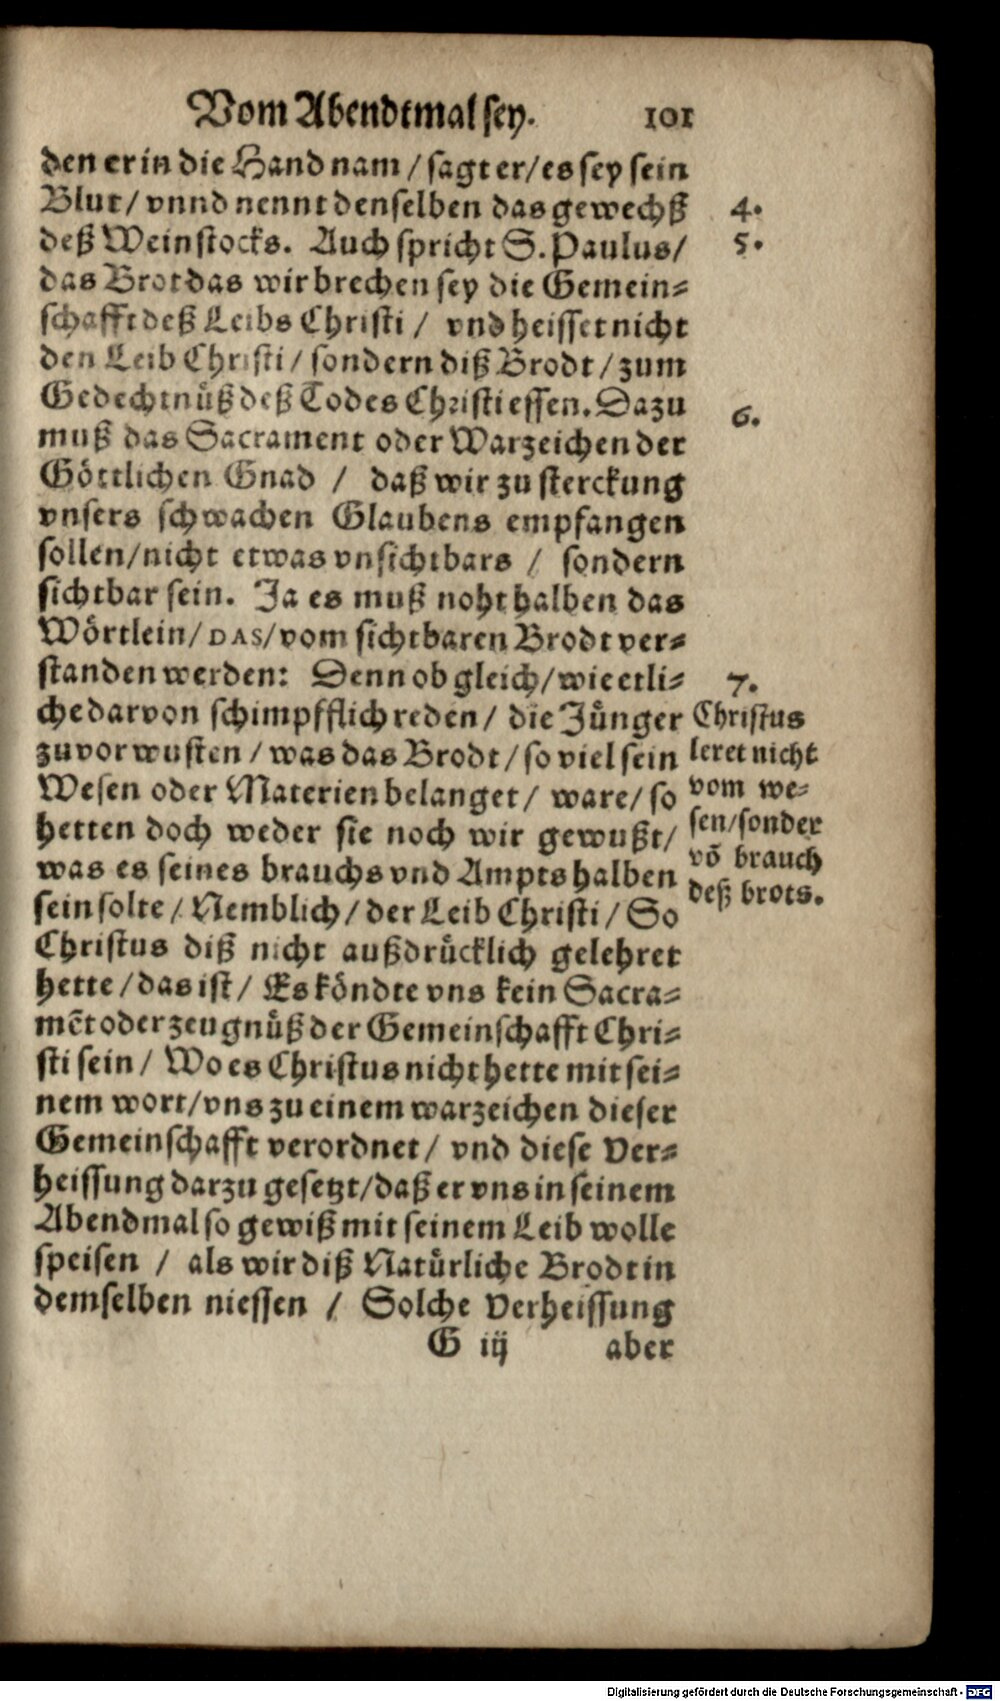 Vom Abendtmal sey. 101
den er in die Hand nam / sagt er / es sey sein
Blut / vnnd nennt denselben das gewechß
4.
deß Weinstocks. Auch spricht S. Paulus /
5.
das Brot das wir brechen sey die Gemein-
schafft deß Leibs Christi / vnd heisset nicht
den Leib Christi / sondern diß Brodt / zum
Gedechtnuͤß deß Todes Christi essen. Dazu
6.
muß das Sacrament oder Warzeichen der
Goͤttlichen Gnad / daß wir zu sterckung
vnsers schwachen Glaubens empfangen
sollen / nicht etwas vnsichtbars / sondern
sichtbar sein. Ja es muß noht halben das
Woͤrtlein / DAS / vom sichtbaren Brodt ver-
standen werden: Denn ob gleich / wie etli-
7.
che darvon schimpfflich reden / die Juͤnger
zuvor wusten / was das Brodt / so viel sein
Wesen oder Materien belanget / ware / so
hetten doch weder sie noch wir gewußt /
was es seines brauchs vnd Ampts halben
sein solte / Nemblich / der Leib Christi / So
Christus
leret nicht
vom we-
sen / sonder
võ brauch
deß brots.
Christus diß nicht außdruͤcklich gelehret
hette / das ist / Es koͤndte vns kein Sacra-
mẽt oder zeugnuͤß der Gemeinschafft Chri-
sti sein / Wo es Christus nicht hette mit sei-
nem wort / vns zu einem warzeichen dieser
Gemeinschafft verordnet / vnd diese Ver-
heissung darzu gesetzt / daß er vns in seinem
Abendmal so gewiß mit seinem Leib wolle
speisen / als wir diß Natuͤrliche Brodt in
demselben niessen / Solche Verheissung
G iij aber
Digitalisierung gefördert durch die Deutsche Forschungsgemeinschaft - DFG